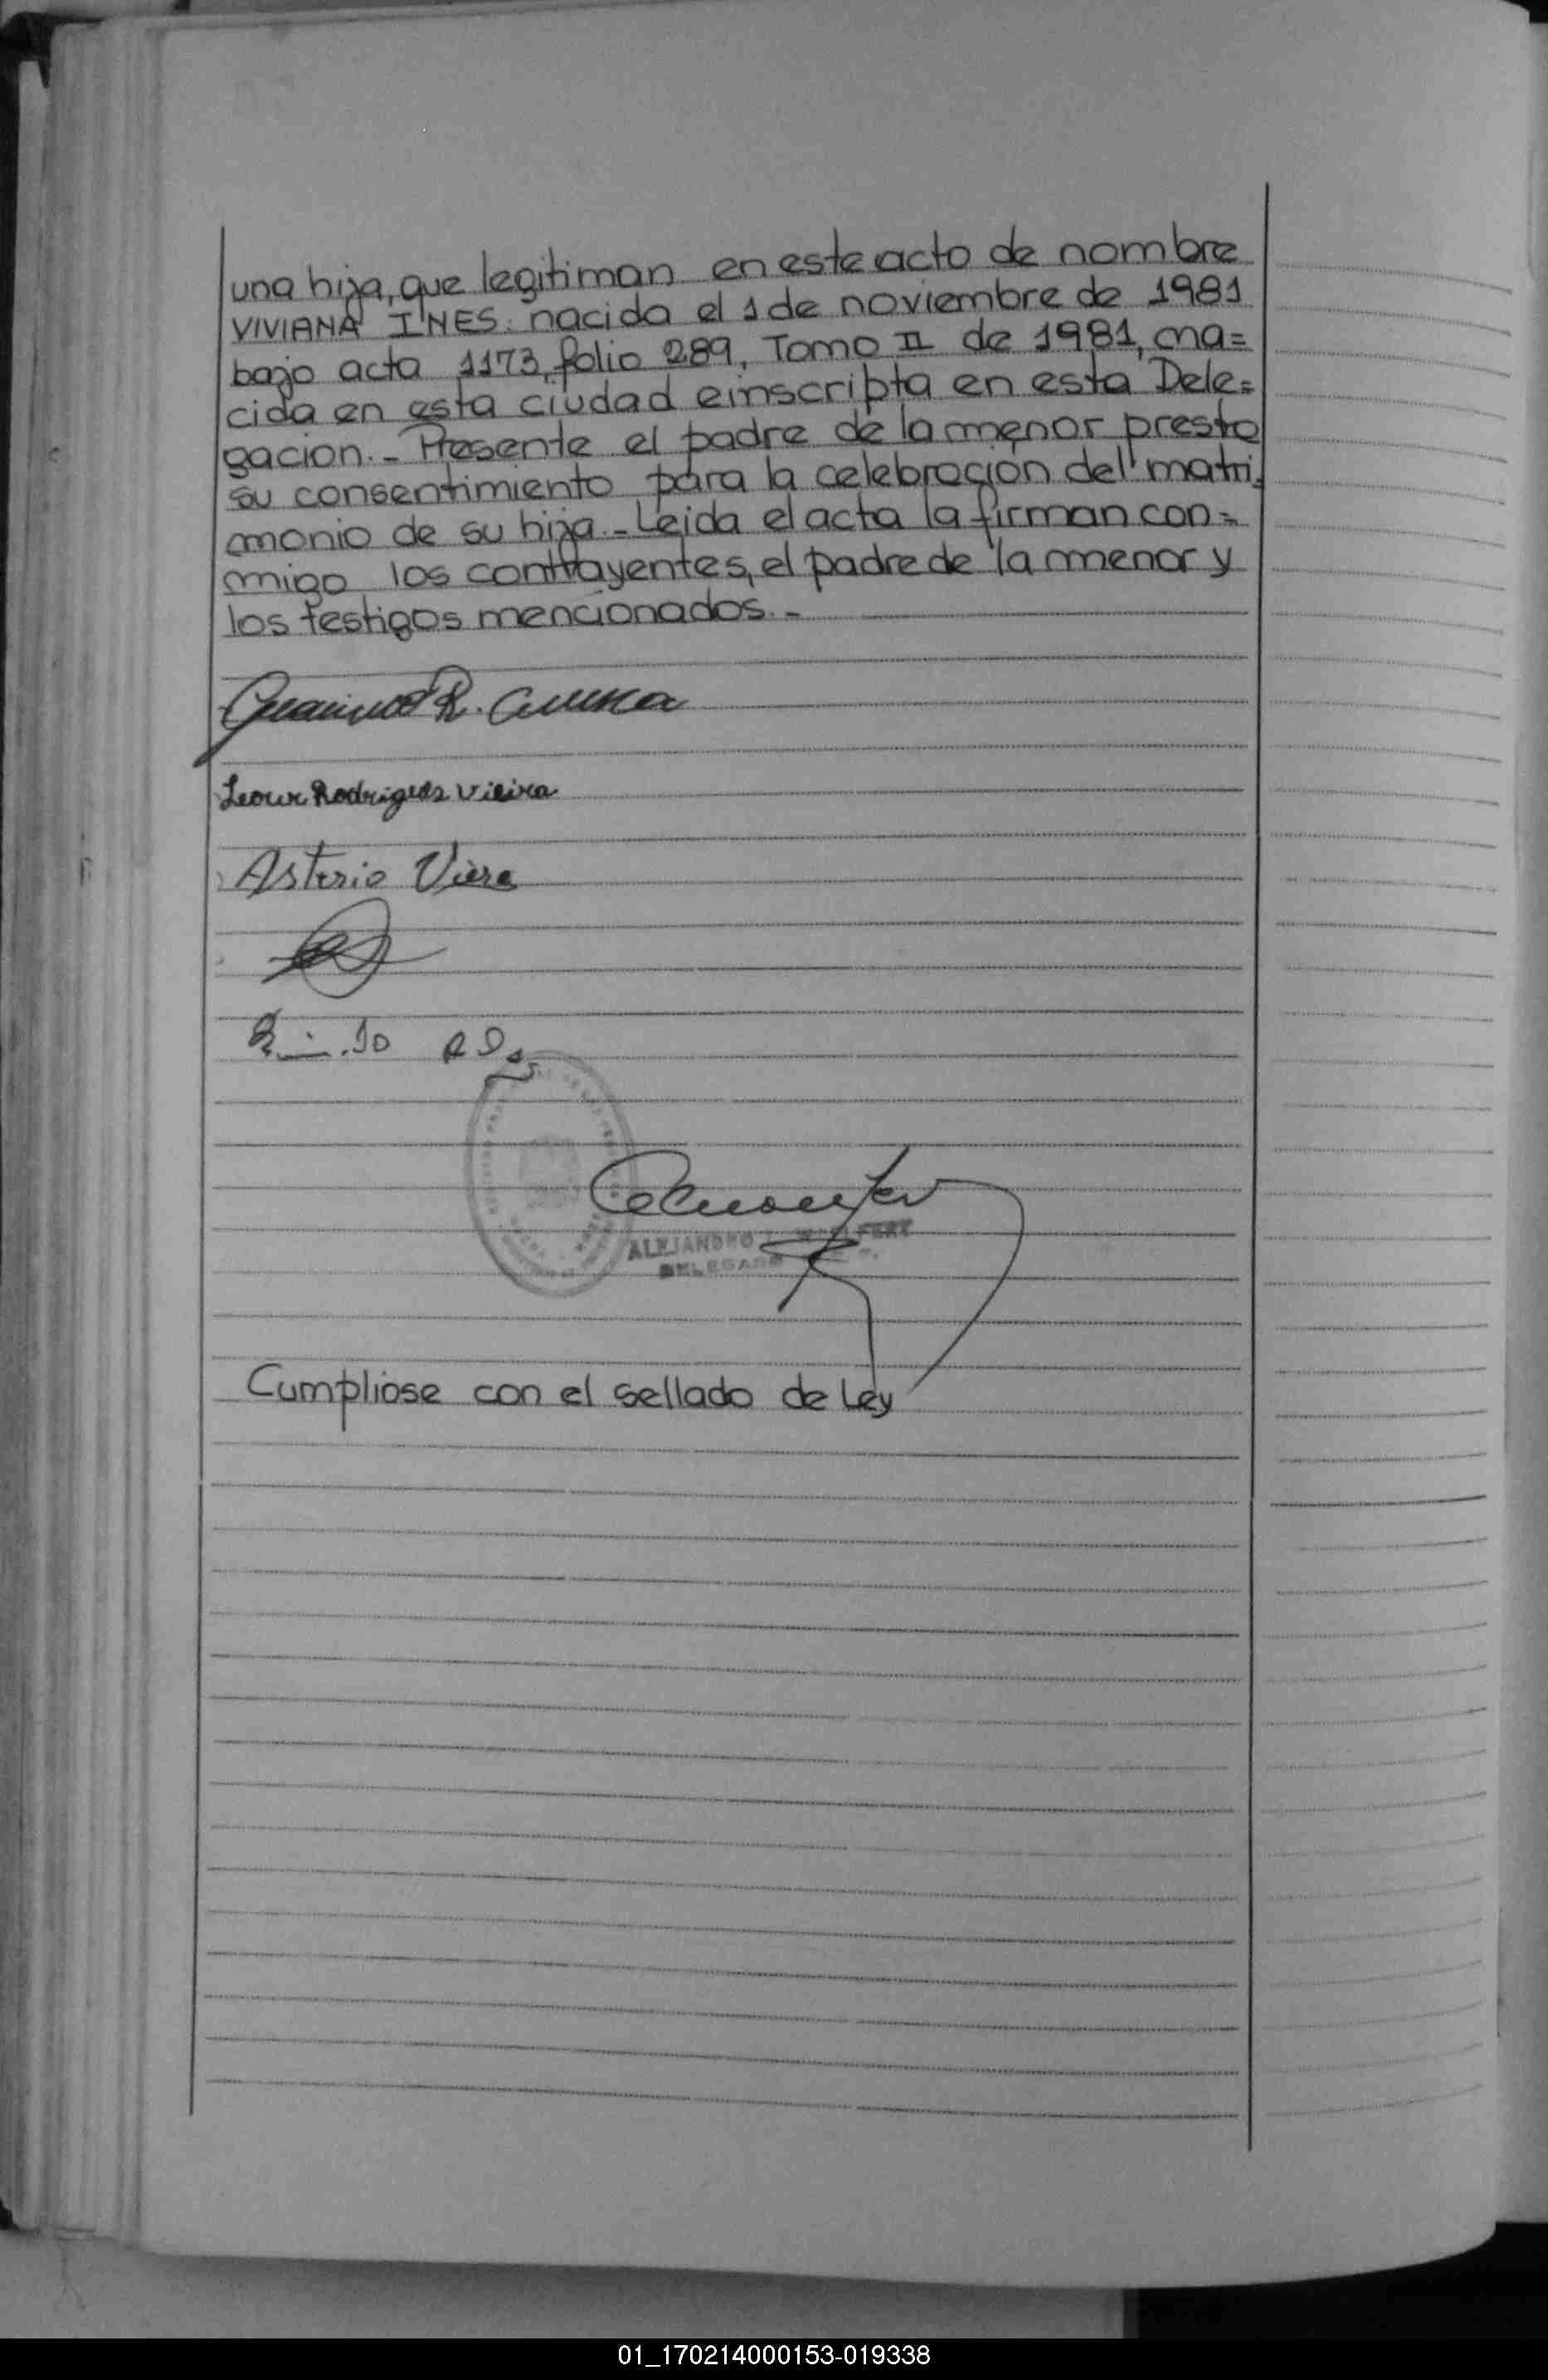 una hija, que legitiman en este acto de nombre
VIVIANA INES: nacida el 1 de noviembre de 1981
bajo acta 1173, folio 289, Tomo II de 1981, na=
cida en esta ciudad e inscripta en esta Dele=
gacion.- Presente el padre de la menor presta
su consentimiento para la celebración del matri-
monio de su hija.- Leida el acta la firman con=
migo los contrayentes, el padre de la menor y
los testigos mencionados.-
R.
Rodrigues Vieira
Asterio Viera
ALEJANDRO
DELEGADO
Cumpliose con el sellado de Ley
01_170214000153-019338